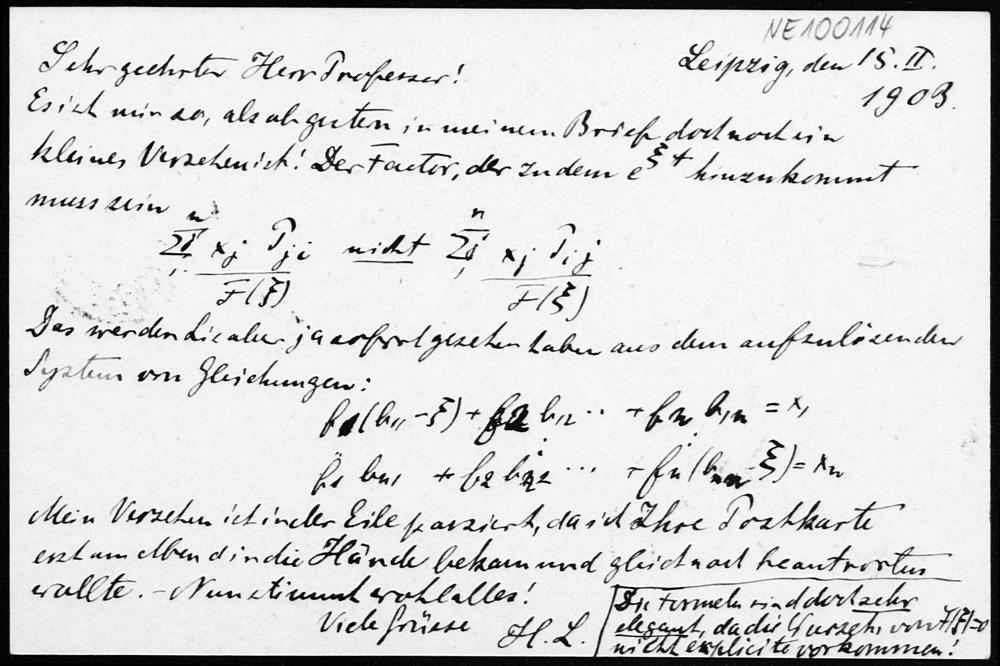 NE100114
Leipzig, den 15. II.
1903.
Sehr geehrter Herr Professor!
Es ist mir so, als ob gestern in meinem Brief doch noch ein
kleines Versehen ist! Der Factor, der zu dem e^{ξt} hinzukommt
muss sein
\frac{\sum_{1}^{n}{}_j x_j P_{ji}}{F(ξ)} nicht \frac{\sum_{1}^{n}{}_j x_j P_{ij}}{F(ξ)}
Das werden Sie aber ja sofort gesehen haben aus dem aufzulösenden
System von Gleichungen:
f_1(b_{11} - ξ) + f_2 b_{12} ·· + f_n b_{1n} = x_1
f_1 b_{n1} + f_2 b_{n2} ··· + f_n(b_{nn} - ξ) = x_n
Mein Versehen ist in der Eile passiert, da ich Ihre Postkarte
erst am Abend in die Hände bekam und gleich noch beantworten
wollte. – Nun stimmt wohl alles!
Viele Grüsse
H. L.
Die Formeln sind doch sehr
elegant, da die Wurzeln von F(ξ)=0
nicht explicite vorkommen!